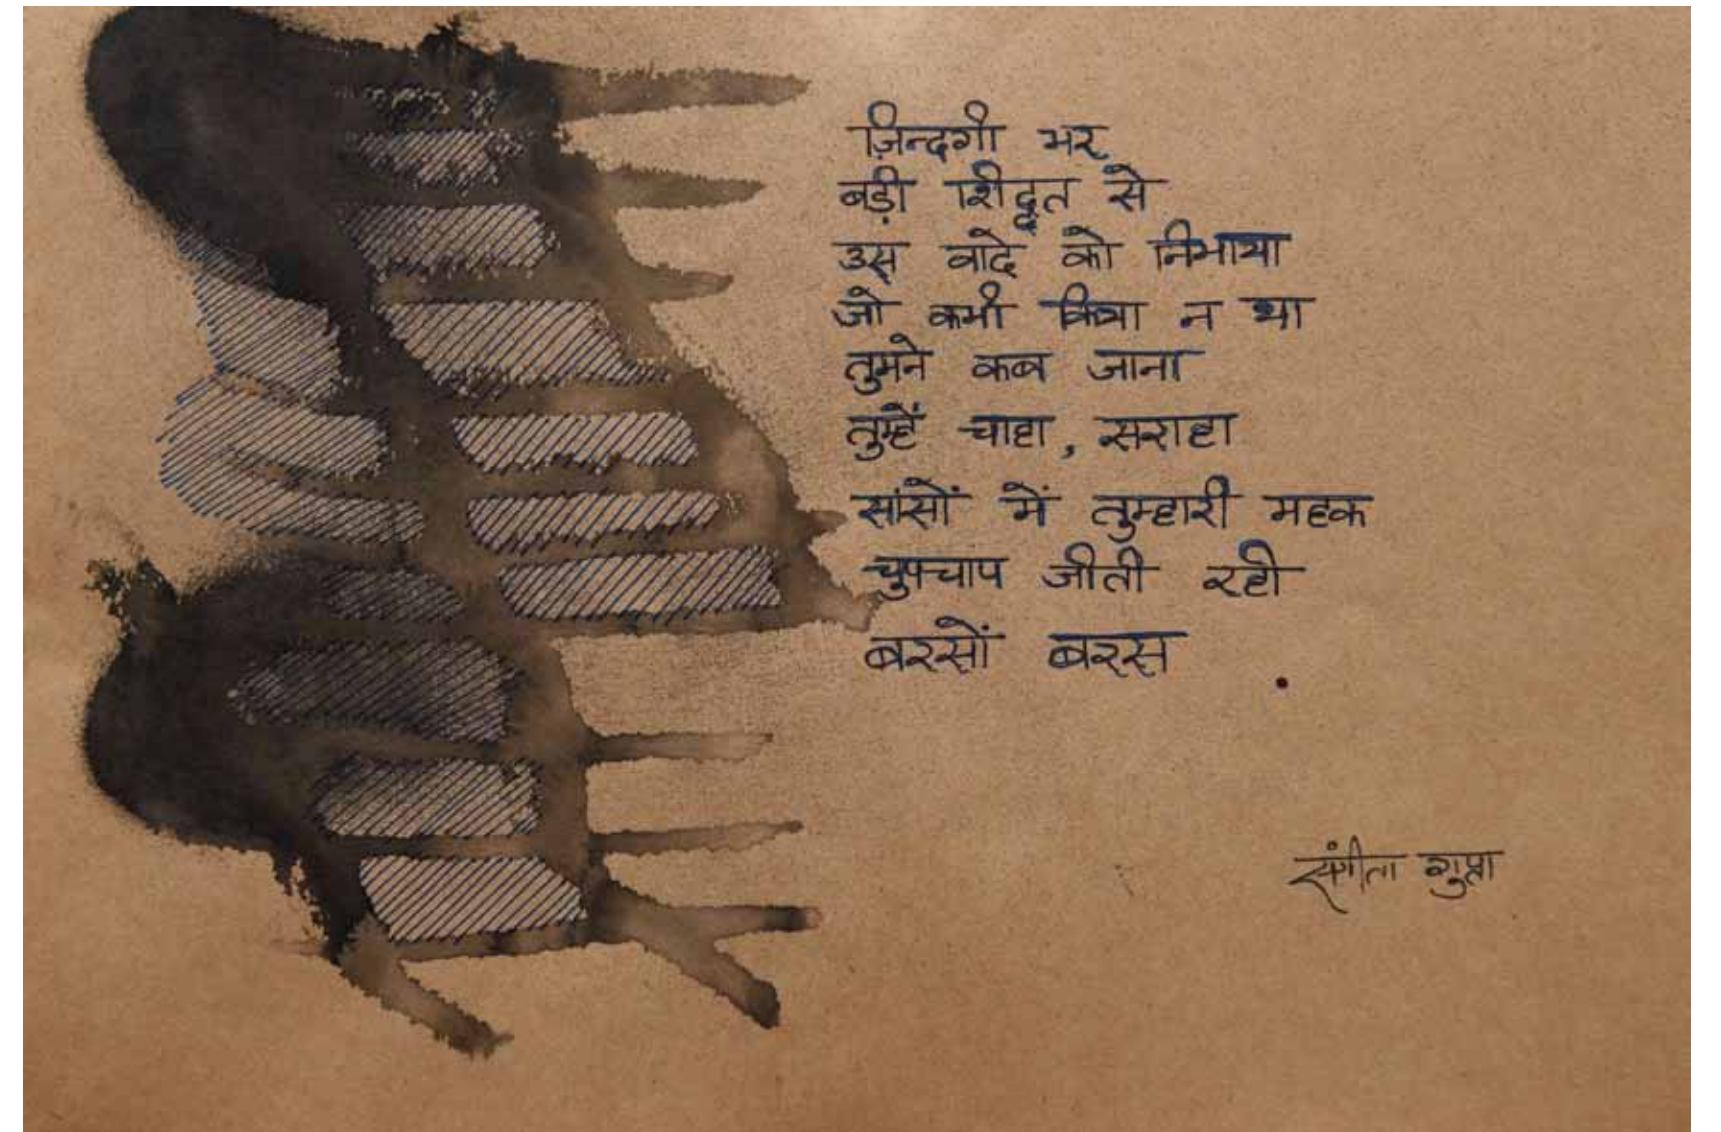 ज़िन्दगी भर
बड़ी शिद्दत से
उस वादे को निभाया
जो कभी किया न था
तुमने कब जाना
तुम्हें चाहा, सराहा
सांसों में तुम्हारी महक
चुपचाप जीती रही
बरसों बरस .
संगीता गुप्ता